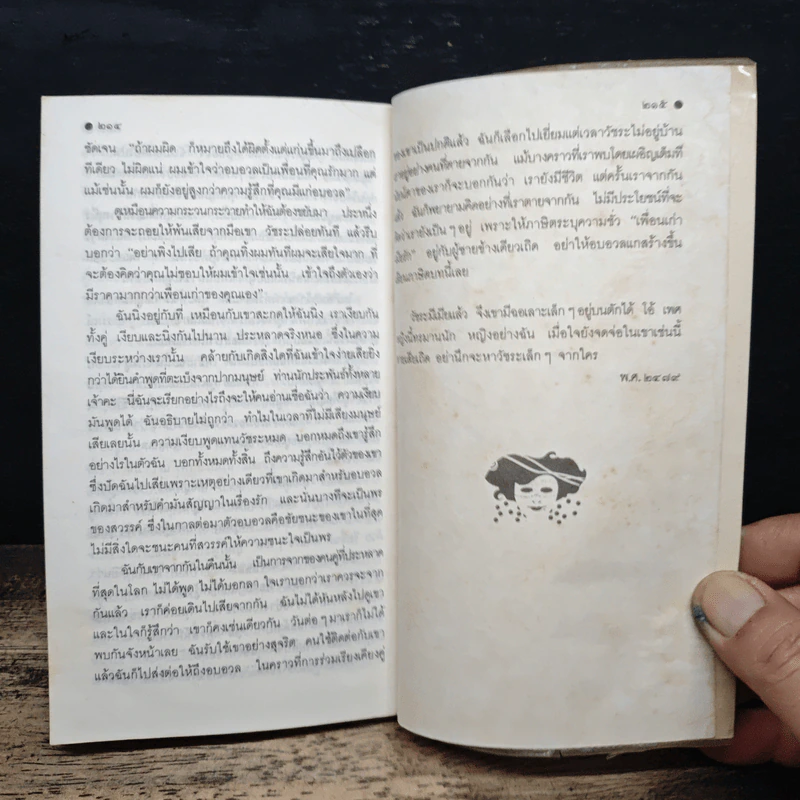 ๒๑๔
ชัดเจน “ถ้าผมผิด ก็หมายถึงได้ผิดตั้งแต่แก่นขึ้นมาถึงเปลือก
ทีเดียว ไม่ผิดแน่ ผมเข้าใจว่าอบอวลเป็นเพื่อนที่คุณรักมาก แต่
แม้เช่นนั้น ผมก็ยังอยู่สูงกว่าความรู้สึกที่คุณมีแก่อบอวล”
ดูเหมือนความกระวนกระวายทำให้ฉันต้องขยับมา ประหนึ่ง
ต้องการจะถอยให้พ้นเสียจากมือเขา วัชระปล่อยทันที แล้วรีบ
บอกว่า “อย่าเพิ่งไปเสีย ถ้าคุณทิ้งผมทันทีผมจะเสียใจมาก ที่
จะต้องคิดว่าคุณไม่ชอบให้ผมเข้าใจเช่นนั้น เข้าใจถึงตัวเองว่า
มีราคามากกว่าเพื่อนเก่าของคุณเอง”
ฉันนิ่งอยู่กับที่ เหมือนกับเขาสะกดให้ฉันนิ่ง เราเงียบกัน
ทั้งคู่ เงียบและนิ่งกันไปนาน ประหลาดจริงหนอ ซึ่งในความ
เงียบระหว่างเรานั้น คล้ายกับเกิดสิ่งใดที่ฉันเข้าใจง่ายเสียยิ่ง
กว่าได้ยินคำพูดที่ตะเบ็งจากปากมนุษย์ ท่านนักประพันธ์ทั้งหลาย
เจ้าคะ นี่ฉันจะเรียกอย่างไรถึงจะให้คนอ่านเชื่อฉันว่า ความเงียบ
มันพูดได้ ฉันอธิบายไม่ถูกว่า ทำไมในเวลาที่ไม่มีเสียงมนุษย์
เสียเลยนั้น ความเงียบพูดแทนวัชระหมด บอกหมดถึงเขารู้สึก
อย่างไรในตัวฉัน บอกทั้งหมดทั้งสิ้น ถึงความรู้สึกอันไว้ตัวของเขา
ซึ่งบัดฉันไปเสียเพราะเหตุอย่างเดียวที่เขาเกิดมาสำหรับอบอวล
เกิดมาสำหรับคำมั่นสัญญาในเรื่องรัก และนั่นบางทีจะเป็นพร
ของสวรรค์ ซึ่งในกาลต่อมาตัวอบอวลคือชัยชนะของเขาในที่สุด
ไม่มีสิ่งใดจะชนะคนที่สวรรค์ให้ความชนะใจเป็นพร
ฉันกับเขาจากกันในคืนนั้น เป็นการจากของคนคู่ที่ประหลาด
ที่สุดในโลก ไม่ได้พูด ไม่ได้บอกลา ใจเราบอกว่าเราควรจะจาก
กันแล้ว เราก็ค่อยเดินไปเสียจากกัน ฉันไม่ได้หันหลังไปดูเขา
และในใจก็รู้สึกว่า เขาก็คงเช่นเดียวกัน วันต่อๆ มาเราก็ไม่ได้
พบกันจังหน้าเลย ฉันรับใช้เขาอย่างสุจริต คนใช้ติดต่อกับเขา
แล้วฉันก็ไปส่งต่อให้ถึงอบอวล ในคราวที่การร่วมเรียงเคียงคู่
๒๑๕
ของเขาเป็นปกติแล้ว ฉันก็เลือกไปเยี่ยมแต่เวลาวัชระไม่อยู่บ้าน
อยู่อย่างคนที่ตายจากกัน แม้บางคราวที่เราพบโดยเผอิญเต็มที่
ของเราก็จะบอกกันว่า เรายังมีชีวิต แต่ครั้นเราจากกัน
แล้ว ฉันก็พยายามคิดอย่างที่เราตายจากกัน ไม่มีประโยชน์ที่จะ
ว่าเรายังเป็นๆ อยู่ เพราะให้ภาษิตระบุความชั่ว “เพื่อนเก่า
อยู่กับผู้ชายข้างเดียวเถิด อย่าให้อบอวลแกสร้างขึ้น
ภาษิตบทนี้เลย
วัชระมีเมียแล้ว จึงเขามีฉอเลาะเล็กๆ อยู่บนตักได้ โอ้ เพศ
หญิงนี้ทรมานนัก หญิงอย่างฉัน เมื่อใจยังจดจ่อในเขาเช่นนี้
เสียเถิด อย่านึกจะหาวัชระเล็กๆ จากใคร
พ.ศ. ๒๔๗๙